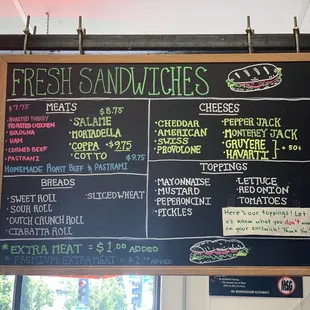 FRESH SANDWICHES
MEATS
$7.75
$8.75
ROASTED TURKEY
ROASTED CHICKEN
BOLOGNA
HAM
CORNED BEEF
PASTRAMI
SALAME
MORTADELLA
COPPA $9.75
COTTO
HOMEMADE ROAST BEEF & PASTRAMI $9.75
BREADS
SWEET ROLL
SOUR ROLL
DUTCH CRUNCH ROLL
CIABATTA ROLL
SLICED WHEAT
*EXTRA MEAT = $1.00 ADDED
* PREMIUM EXTRA MEAT = ADDED
CHEESES
CHEDDAR
AMERICAN
SWISS
PROVOLONE
PEPPER JACK
MONTEREY JACK
GRUYERE
HAVARTI
+ 50¢
TOPPINGS
MAYONNAISE
MUSTARD
PEPERONCINI
PICKLES
LETTUCE
RED ONION
TOMATOES
Here's our toppings! Let us
know what you DON'T want
on your sandwich! Thank you
MSG